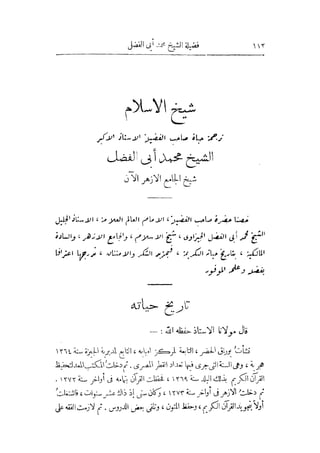 ١١٢ فضيلة الشيخ محمد أبى الفضل
شيخ الاسلام
ترجمة حياة صاحب الفضيلة الاستاذ الاكبر
الشيخ محمد أبى الفضل
شيخ الجامع الازهر الآن
خصنا حضرة صاحب الفضيلة، الامام العالم العلامة، الاستاذ الجليل
الشيخ محمد أبى الفضل الجيزاوى، شيخ الاسلام، والجامع الازهر، والسادة
المالكية، بتاريخ حياته الكريمة، فنجزه الشكر والامتنان، ندرجها اعترافا
بفضله وعلمه الموفور
تاريخ حياته
قال مولانا الاستاذ حفظه الله : —
نشأت بوراق الحضر، التابعة لمركز امبابه، التابع لمديرية الجيزة سنة ١٢٦٤
هجرية، وهى السنة التى جرى فيها تعداد القطر المصرى. ثم دخلت المكتب المعد لتحفيظ
القرآن الكريم بذلك البلد سنة ١٢٦٩، فحفظت القرآن بتمامه فى أواخر سنة ١٢٧٢.
ثم دخلت الازهر فى أواخر سنة ١٢٧٣، وكان سنى إذ ذاك عشر سنوات، فاشتغلت
أولاً بتجويد القرآن الكريم، وحفظ المتون، وتلقى بعض الدروس. ثم لازمت الفقه على